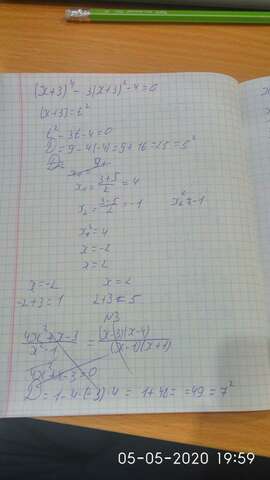 (x+3)⁴ - 3(x+3)² - 4 = 0
(x+3) = t²
t² - 3t - 4 = 0
D = 9 - 4(-4) = 9 + 16 = 25 = 5²
x₁ = 3+5/2 = 4
x₂ = 3-5/2 = -1
x² = 4
x = -2
x = 2
x = -2 x = 2
-2+3 = 1 2+3 = 5
N3
4x²+x-3/x²-1 = (x-3)(x-4)/(x-1)(x+1)
4x²+x-3=0
D = 1-4·(-3)·4 = 1+48 = 49 = 7²
05-05-2020 19:59